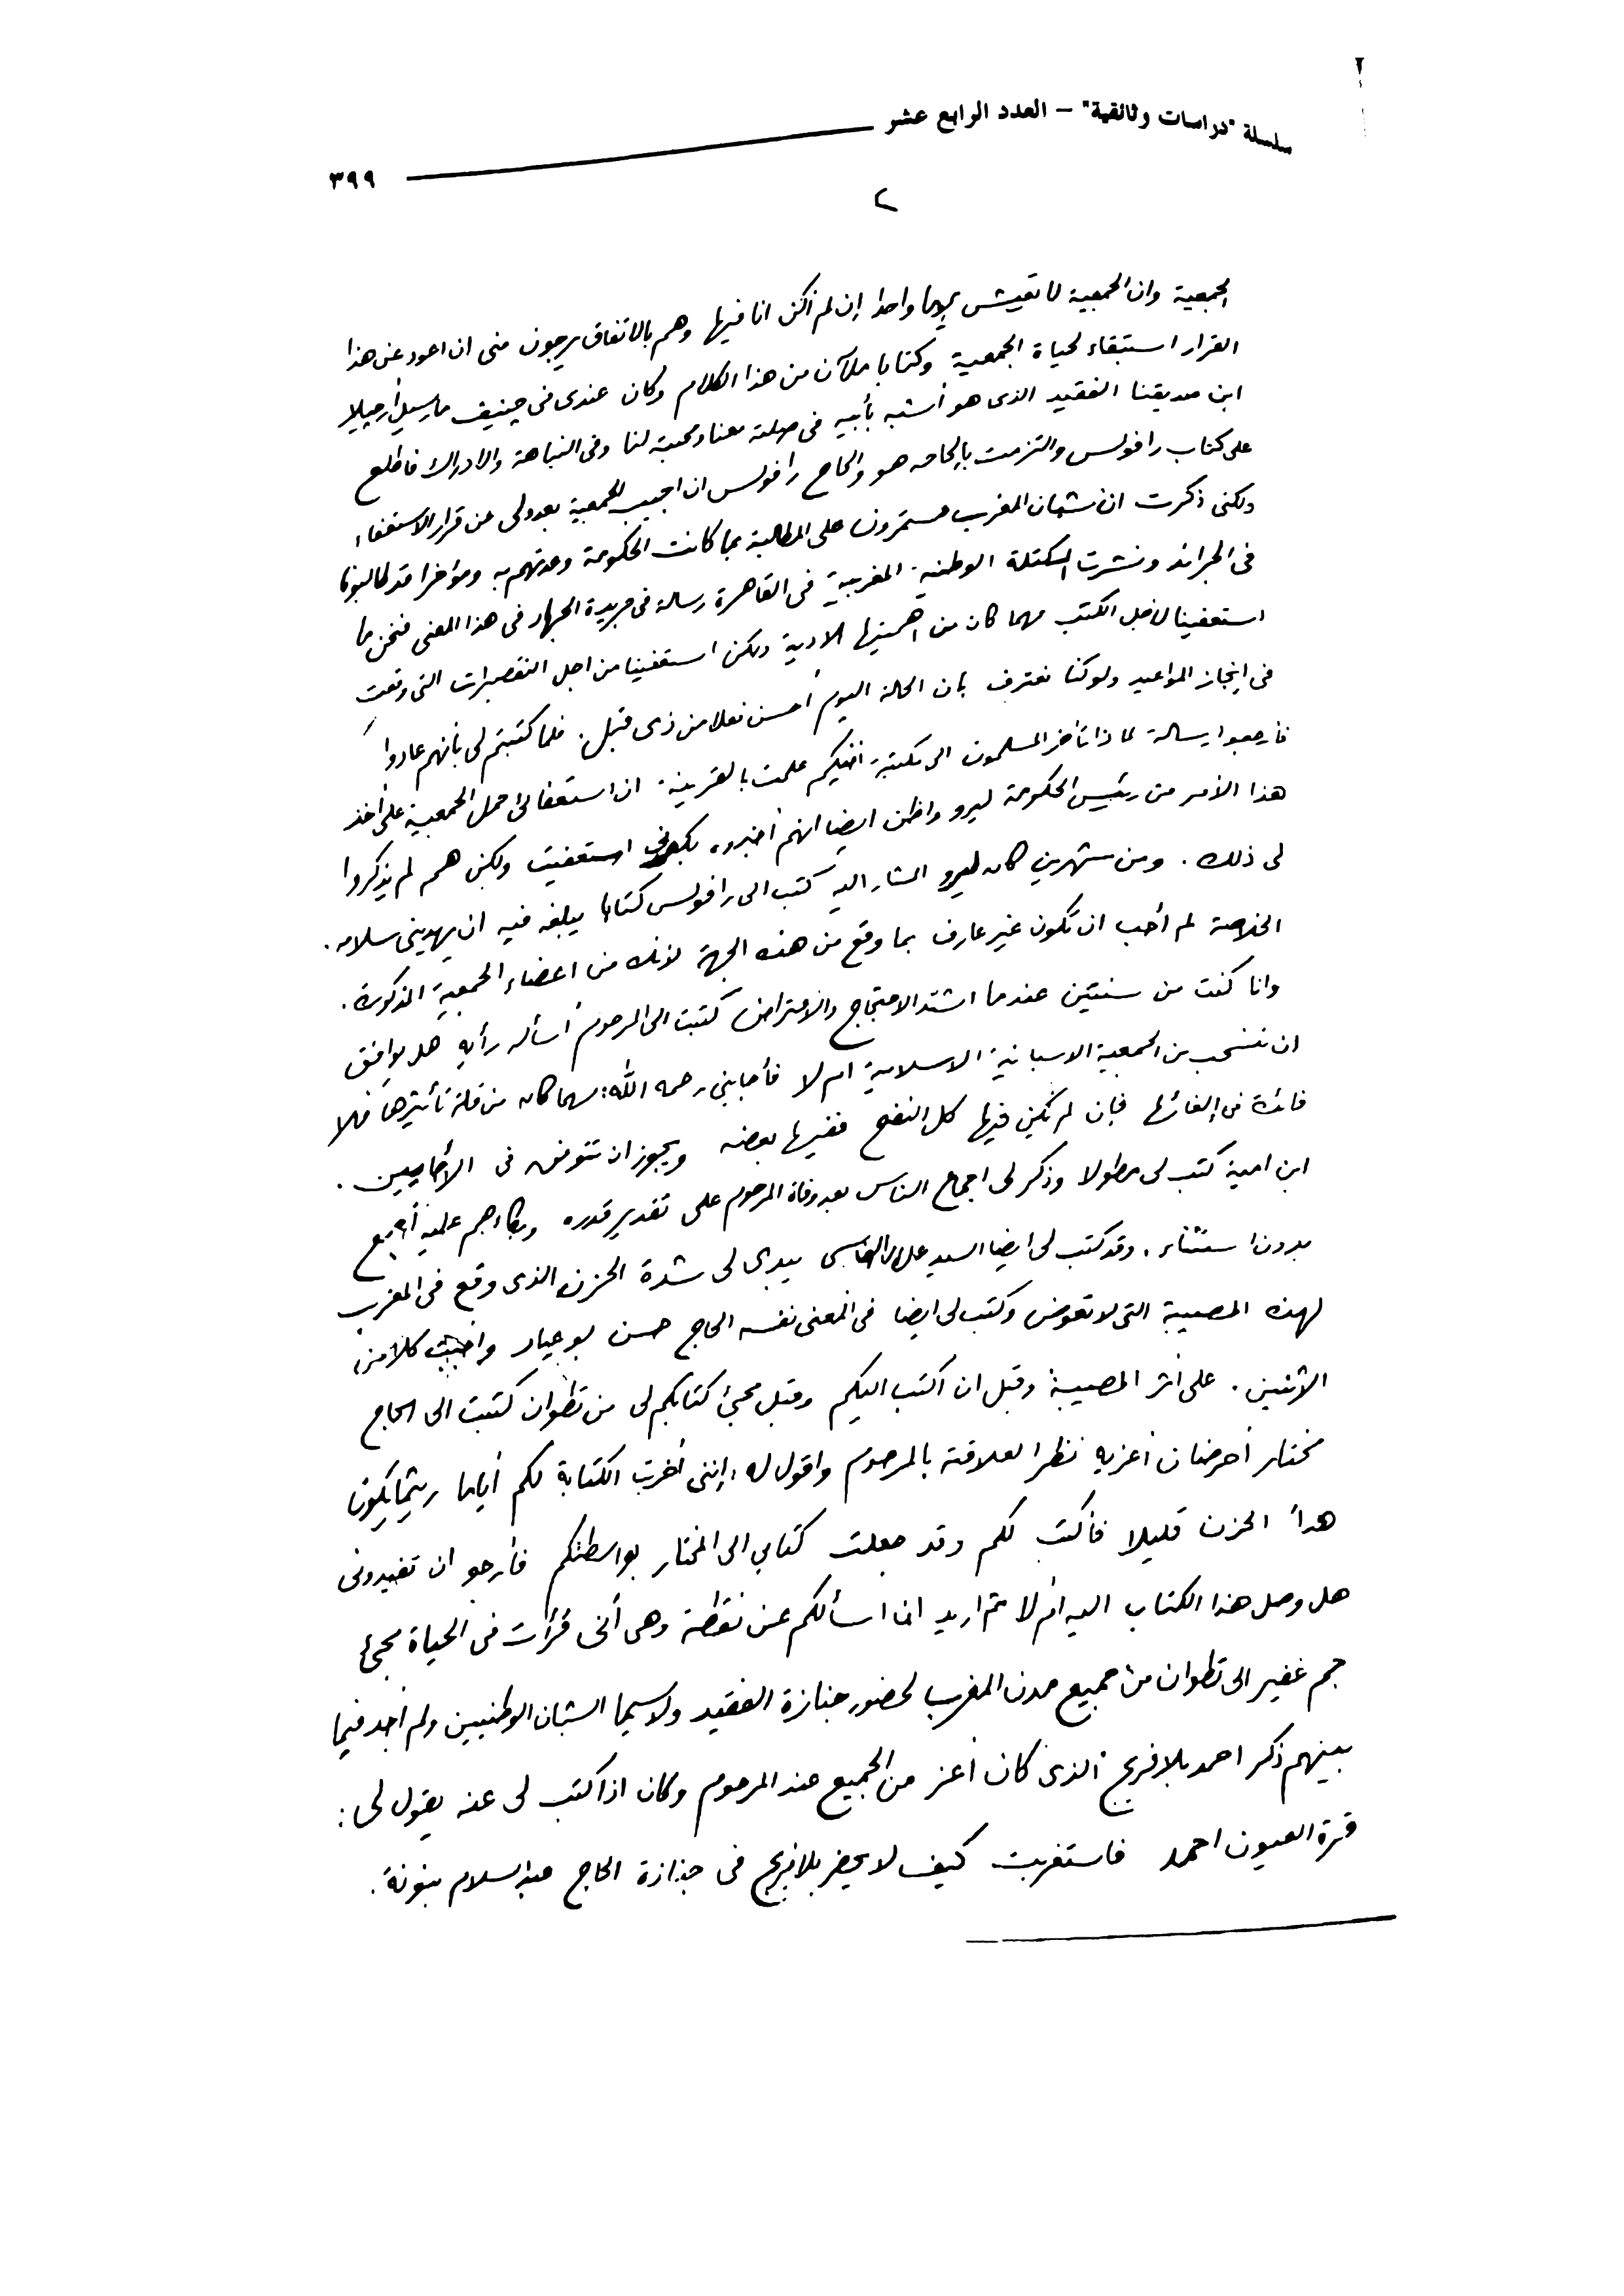 سلسلة "دراسات وثائقية" – العدد الرابع عشر
٣٩٩
٢
الجمعية وان الجمعية لا تعيش يوما واحدا إن لم أكن انا فيها وهم بالاتفاق يرجون منى ان اعود عن هذا
القرار استبقاء لحياة الجمعية وكتابا ملآن من هذا الكلام وكان عندى فى جينيف مارسيل أرجيلا
ابن صديقنا الفقيد الذى هو أشبه بأبيه فى صلته معنا ومحبته لنا وفى النباهة والادراك فاطلع
على كتاب رافولس والتزمت بإلحاحه هو والحاح رافولس ان اجيب الجمعية بعدولى عن قرار الاستعفاء
ولكنى ذكرت ان شبان المغرب مستمرون على المطالبة بما كانت الحكومة وعدتهم به ومؤخرا قد طالبونا
فى الجرائد ونشرت الكتلة الوطنية المغربية فى القاهرة رسالة فى جريدة الجهاد فى هذا المعنى فنحن ما
استعفينا لاجل الكتب مهما كان من اهميتها الادبية ولكن استعفينا من اجل التقصيرات التى وقعت
فى إنجاز المواعيد ولو كنا نعترف بان الحالة اليوم أحسن فعلا من ذى قبل. فلما كتبتم لى بأنهم عادوا
فارجعوا رسالة لماذا تأخر المسلمون الى مكتبة اخيكم علمت بالقرينة ان استعفائى حمل الجمعية على أخذ
هذا الأمر من رئيس الحكومة ليرو واظن ايضا انهم أخبروه بكونى استعفيت ولكن هم لم يذكروا
لى ذلك. ومن شهرين كان ليرو المشار اليه كتب الى رافولس كتابا يبلغه فيه ان يهدينى سلامه.
الخلاصة لم أحب ان تكون غير عارف بما وقع من هذه الجهة لانك من اعضاء الجمعية المذكورة.
وانا كنت من سنتين عندما اشتد الاحتجاج والاعتراض كتبت الى المرحوم أسأله رأيه هل يوافق
ان ننسحب من الجمعية الاسبانية الاسلامية ام لا فأجابنى رحمه الله: مهما كان من قلة تأثيرها فلا
فائدة فى إلغائها فإن لم تكن فيها كل النفع ففيها بعضه ويجوز ان تتوفق فى الأحايين.
ابن امية كتب لى مطولا وذكر لى اجماع الناس بعد وفاة المرحوم على تقدير قدره وبكاءهم عليه أجمع
بدون استثناء. وقد كتب لى ايضا السيد علال الفاسى يبدى لى شدة الحزن الذى وقع فى المغرب
لهذه المصيبة التى لا تعوض وكتب لى ايضا فى المعنى نفسه الحاج حسن بو عياد وأجبت كلا من
الاثنين. على أثر المصيبة وقبل ان اكتب اليكم وقبل مجئ كتابكم لى من تطوان كتبت الى الحاج
مختار أحرضان أعزيه نظرا لعلاقته بالمرحوم واقول له، إننى أخرت الكتابة لكم أياما ريثما يكون
هدأ الحزن قليلا فأكتب لكم وقد جعلت كتابي الى المختار بواسطتكم فأرجو ان تفيدونى
هل وصل هذا الكتاب اليه أم لا ثم اريد ان اسألكم عن نقطة وهى أنى قرأت فى الحياة مجئ
جم غفير الى تطوان من جميع مدن المغرب لحضور جنازة الفقيد ولا سيما الشبان الوطنيين ولم أجد فيما
بينهم ذكر احمد بلافريج الذى كان أعز من الجميع عند المرحوم وكان اذا كتب لى عنه يقول لى:
قرة العيون احمد فاستغربت كيف لا يحضر بلافريج فى جنازة الحاج عبد السلام بنونة.